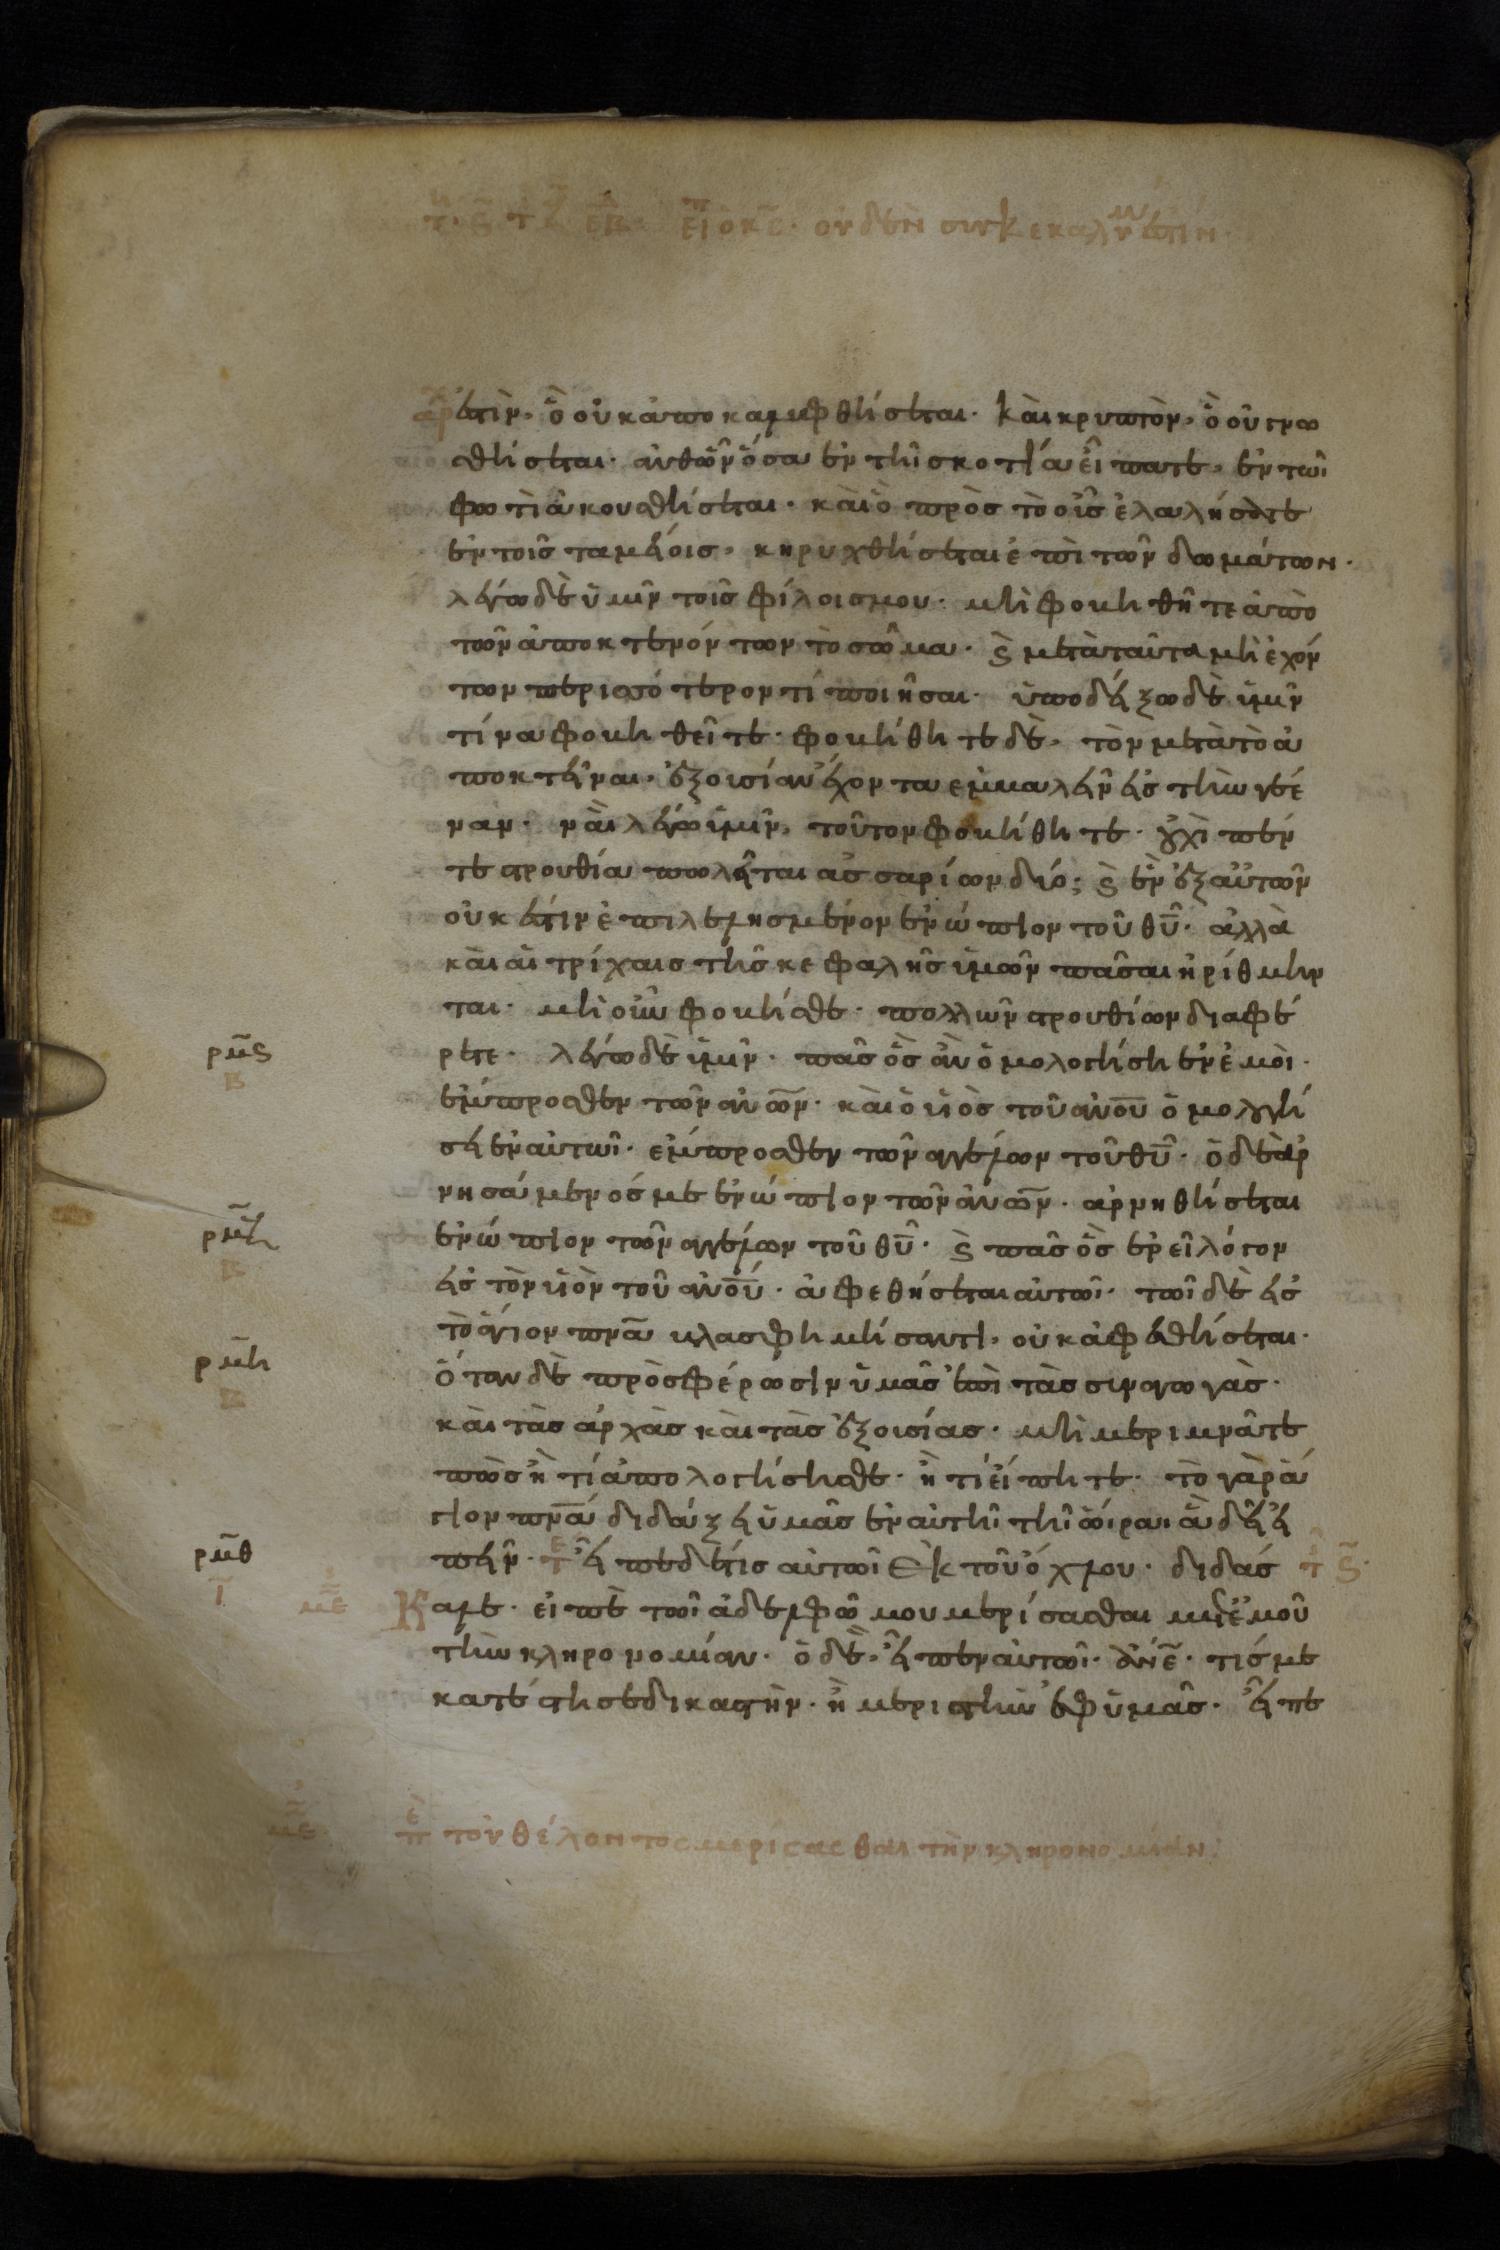 εἶπ ὁ κς· οὐδὲν συγκεκαλυμ
ἐστὶν, ὃ οὐκ ἀποκαλυφθήσεται· καὶ κρυπτὸν, ὃ οὐ γνω
σθήσεται· ἀνθῶν ὅσα ἐν τῆ σκοτία εἴπατε, ἐν τῶι
φωτὶ ἀκουσθήσεται· καὶ ὃ πρὸς τὸ οὖς ἐλαλήσατε
ἐν τοῖς ταμείοις, κηρυχθήσεται ἐπὶ τῶν δωμάτων·
λέγω δὲ ὑμῖν τοῖς φίλοις μου· μὴ φοβηθῆτε ἀπὸ
τῶν ἀποκτενόντων τὸ σῶμα· ϗ μετὰ ταῦτα μὴ ἐχόν
των περισσότερον τί ποιῆσαι· ὑποδείξω δὲ ὑμῖν
τίνα φοβηθεῖτε· φοβήθητε δὲ, τὸν μετὰ τὸ ἀ
ποκτεῖναι, ἐξουσίαν ἔχοντα ἐμβαλεῖν εἰς τὴν γέε
ναν· ναὶ λέγω ὑμῖν, τοῦτον φοβήθητε· οὐχὶ πέν
τε στρουθία πωλεῖται ἀσσαρίων δύο; ϗ ἓν ἐξ αὐτῶν
οὐκ ἔστιν ἐπιλελησμένον ἐνώπιον τοῦ θῦ· ἀλλὰ
καὶ αἱ τρίχαις τῆς κεφαλῆς ὑμῶν πᾶσαι ἠρίθμην
ται· μὴ οὖν φοβῆσθε· πολλῶν στρουθίων διαφέ
ρετε· λέγω δὲ ὑμῖν· πᾶς ὃς ἂν ὁμολογήση ἐν ἐμοὶ·
ἔμπροσθεν τῶν ἀνων· καὶ ὁ υἱὸς τοῦ ἀνου ὁμολογή
σει ἐν αὐτῶι· ἔμπροσθεν τῶν ἀγγέλων τοῦ θῦ· ὁ δὲ ἀρ
νησάμενός με ἐνώπιον τῶν ἀνων· ἀρνηθήσεται
ἐνώπιον τῶν ἀγγέλων τοῦ θῦ· ϗ πᾶς ὃς ἐρεῖ λόγον
εἰς τὸν υἱὸν τοῦ ἀνου· ἀφεθήσεται αὐτῶι· τῶι δὲ εἰς
τὸ ἅγιον πνα βλασφημήσαντι, οὐκ ἀφεθήσεται·
ὅταν δὲ προσφέρωσιν ὑμᾶς ἐπὶ τὰς συναγωγὰς·
καὶ τὰς ἀρχὰς καὶ τὰς ἐξουσίας· μὴ μεριμνᾶτε
πῶς ἢ τί ἀπολογήσησθε· ἢ τί εἴπητε· τὸ γὰρ ἅ
γιον πνα διδάξει ὑμᾶς ἐν αὐτῆι τῆι ὥρα, ἃ δεῖ εἰ
πεῖν· εἶπε δέ τις αὐτῶι ἐκ τοῦ ὄχλου· διδάσ
καλε· εἰπὲ τῶι ἀδελφῶ μου μερίσασθαι μετ ἐμοῦ
τὴν κληρονομίαν· ὁ δὲ, εἶπεν αὐτῶι· ἄνε· τίς με
κατέστησε δικαστὴν· ἢ μεριστὴν ἐφ ὑμᾶς· εἶπε
ρμς
ρμζ
ρμη
ρμθ
με
με πε τοῦ θέλοντος μερίσασθαι τὴν κληρονομίαν: